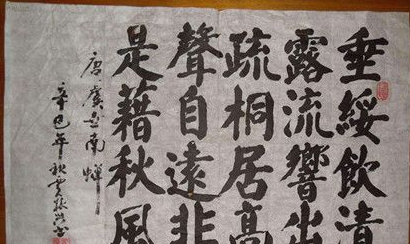 垂綏飲清
露流響出
疏桐居高
聲自遠非
是藉秋風
唐虞世南蟬
辛巳年秋